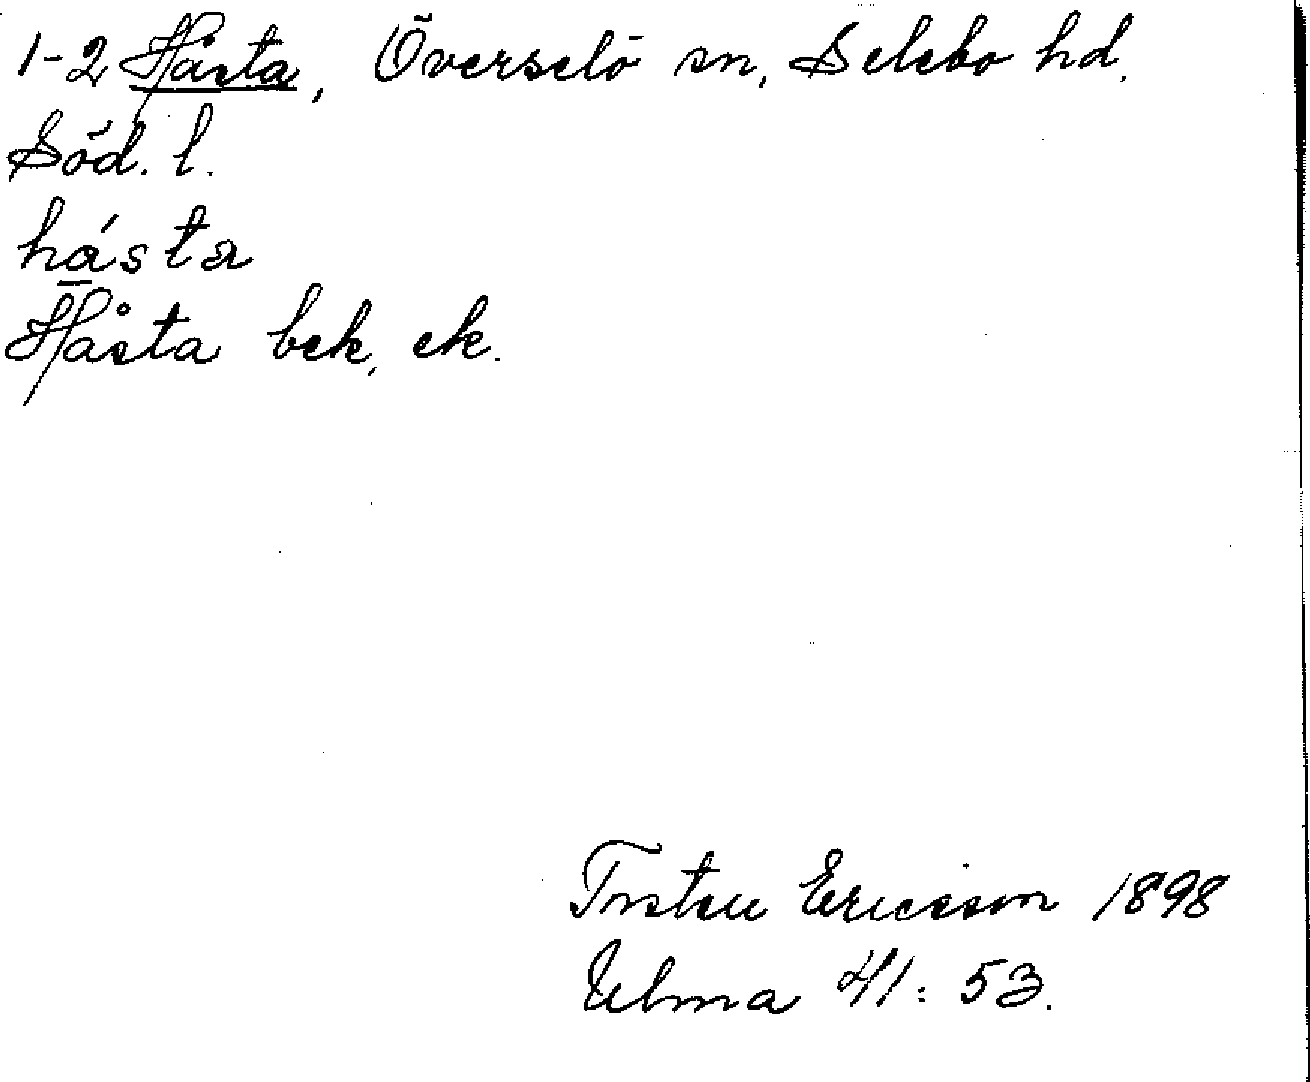 1-2 Håsta, Överselö sn, Selebo hd.
Söd. l.
hásta
Håsta bek, ek.
Torsten Ericsson 1898
Ulma 41: 53.